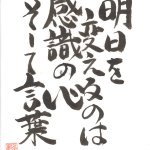 明日を
変えるのは
感識の心
そして言葉